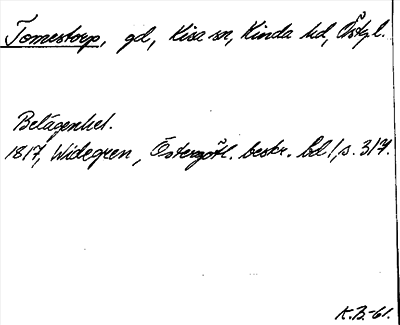 Tomestorp, gd, Kisa sn, Kinda hd, Östgl.
Belägenhet.
1817, Widegren, Östergötl. beskr. bd 1, s. 317.
K.B.-61.